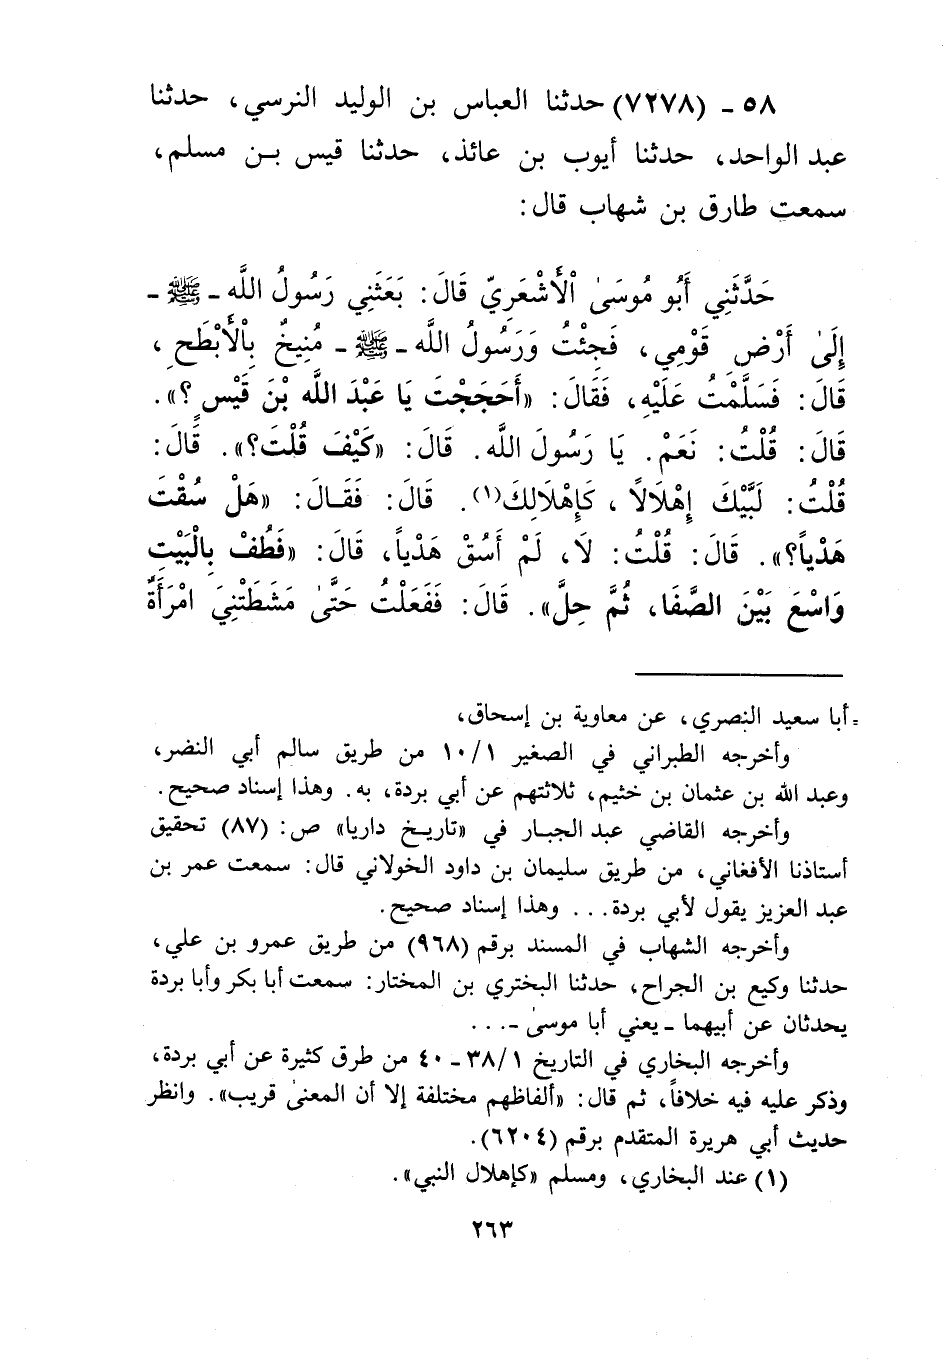 ٥٨ - (٧٢٧٨) حدثنا العباس بن الوليد النرسي، حدثنا
عبد الواحد، حدثنا أيوب بن عائذ، حدثنا قيس بن مسلم،
سمعت طارق بن شهاب قال:
حَدَّثَنِي أَبُو مُوسَىٰ الْأَشْعَرِيّ قَالَ: بَعَثَنِي رَسُولُ اللَّه - ﷺ -
إِلَىٰ أَرْضِ قَوْمِي، فَجِئْتُ وَرَسُولُ اللَّه - ﷺ - مُنِيخٌ بِالْأَبْطَحِ،
قَالَ: فَسَلَّمْتُ عَلَيْهِ، فَقَالَ: «أَحَجَجْتَ يَا عَبْدَ اللَّه بْنَ قَيْسٍ؟».
قَالَ: قُلْتُ: نَعَمْ. يَا رَسُولَ اللَّه. قَالَ: «كَيْفَ قُلْتَ؟». قَالَ:
قُلْتُ: لَبَّيْكَ إِهْلَالًا، كَإِهْلَالِكَ(١). قَالَ: فَقَالَ: «هَلْ سُقْتَ
هَدْياً؟». قَالَ: قُلْتُ: لَا، لَمْ أَسُقْ هَدْياً، قَالَ: «فَطُفْ بِالْبَيْتِ
وَاسْعَ بَيْنَ الصَّفَا، ثُمَّ حِلَّ». قَالَ: فَفَعَلْتُ حَتَّىٰ مَشَطَتْنِيَ امْرَأَةٌ
= أبا سعيد النصري، عن معاوية بن إسحاق،
وأخرجه الطبراني في الصغير ١٠/١ من طريق سالم أبي النضر،
وعبد الله بن عثمان بن خثيم، ثلاثتهم عن أبي بردة، به. وهذا إسناد صحيح.
وأخرجه القاضي عبد الجبار في «تاريخ داريا» ص: (٨٧) تحقيق
أستاذنا الأفغاني، من طريق سليمان بن داود الخولاني قال: سمعت عمر بن
عبد العزيز يقول لأبي بردة... وهذا إسناد صحيح.
وأخرجه الشهاب في المسند برقم (٩٦٨) من طريق عمرو بن علي،
حدثنا وكيع بن الجراح، حدثنا البختري بن المختار: سمعت أبا بكر وأبا بردة
يحدثان عن أبيهما - يعني أبا موسىٰ - ...
وأخرجه البخاري في التاريخ ٣٨/١ - ٤٠ من طرق كثيرة عن أبي بردة،
وذكر عليه فيه خلافاً، ثم قال: «ألفاظهم مختلفة إلا أن المعنىٰ قريب». وانظر
حديث أبي هريرة المتقدم برقم (٦٢٠٤).
(١) عند البخاري، ومسلم «كإهلال النبي».
٢٦٣